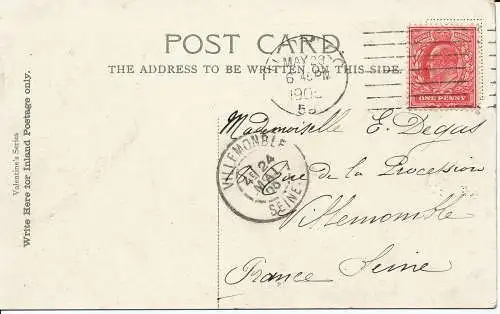 POST CARD.
THE ADDRESS TO BE WRITTEN ON THIS SIDE.
Valentine's Series
Write Here for Inland Postage only.
MAY 23
6 45 PM
ONE PENNY
VILLEMONBLE
24
MAI
06
SEINE
Mademoiselle E. Degas
Rue de la Procession
Villemomble
France Seine